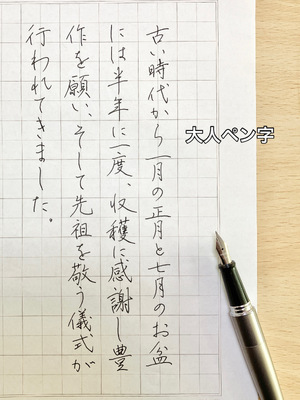 古い時代から一月の正月と七月のお盆
には半年に一度、収穫に感謝し豊
作を願い、そして先祖を敬う儀式が
行われてきました。
大人ペン字